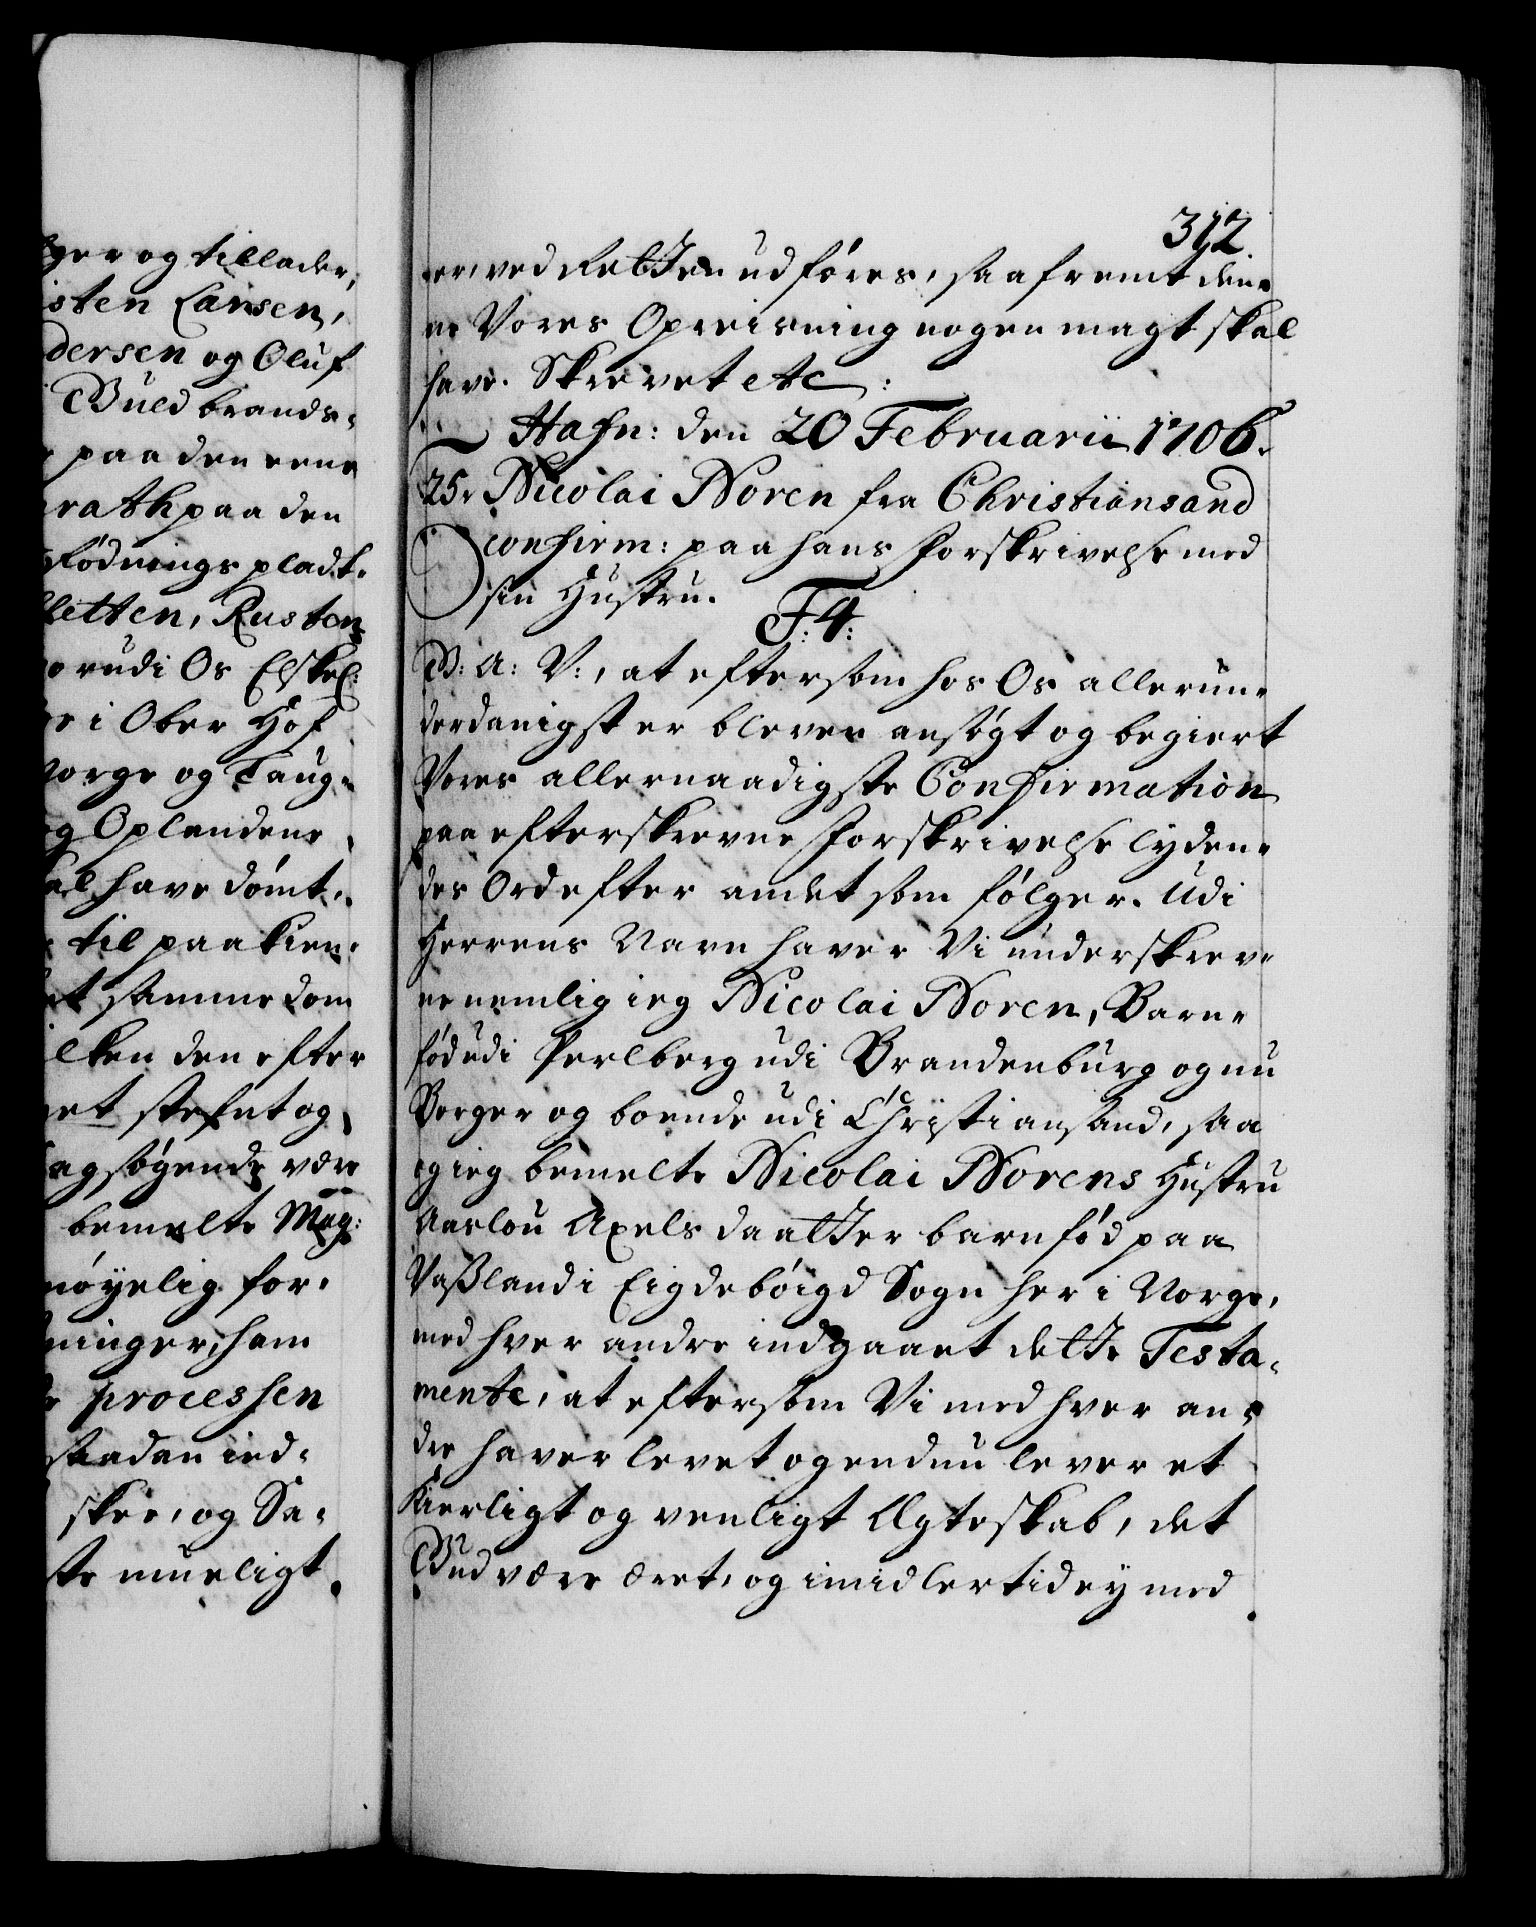 ger og tillader,
sten Larsen,
dersen og Oluf
Guldbrands-
paa den eene
rath paa den
flödnings pladt.
letten, Rusten
rudi Os Elskel:
i Ober Hof
Norge og Laug-
og Oplandene
al have dömt,
til paakien-
et samme dom
ilken den efter
et stefnt og
agsögende være
bemelte Mag:
nöyelig for-
ninger, ham
processen
saadan ind-
skee, og Sa-
ste mueligt.
312
er, ved Retten udföres, saafremt den-
ne Vores Opreisning nogen magt skal
have. Skrevet etc:
Hafn: den 20 Februarii 1706.
25. Nicolai Noren fra Christiansand
confirm: paa hans Forskrivelse med
sin Hustru.
F: 4:
G: A: V:, at eftersom hos Os allerun-
derdanigst er bleven ansögt og begiert
Vores allernaadigste Confirmation
paa efterskrevne Forskrivelse lyden-
des Ord efter andet som fölger. Udi
Herrens Navn haver Vi underskrev-
ne nemlig ieg Nicolai Noren, Barn-
föd udi Perlberg udi Brandenburg og nu
Borger og boende udi Christiansand, saa
og ieg bemelte Nicolai Norens Hustru
Aaslou Axels daatter barnföd paa
Vaßland i Eigdeböigd Sogn her i Norge,
med hver andre indgaaet dette Testa-
mente, at eftersom Vi med hver an-
dre haver levet og endnu lever et
Kierligt og venligt Ægteskab, det
Gud være æret, og imidlertid ey med